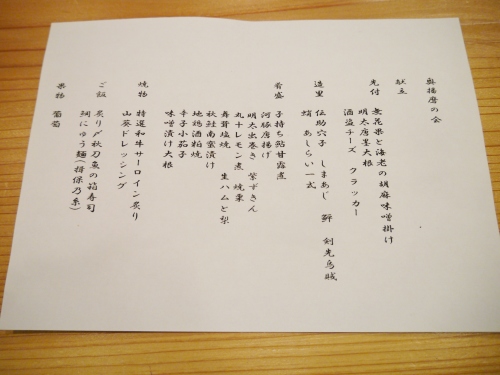 奥播磨の会
献立
先付 無花果と海老の胡麻味噌掛け
明太唐墨大根
酒盗チーズ クラッカー
造里 伝助穴子 しまあじ 鮃 剣先烏賊
蛸 あしらい一式
肴盛 子持ち鮎甘露煮
河豚唐揚げ
明太出巻き 紫ずきん
丸十レモン煮 焼栗
舞茸塩焼 生ハムと梨
秋鮭南蛮漬け
地鶏酒粕焼
辛子小茄子
味噌漬け大根
焼物 特選和牛サーロイン炙り
山葵ドレッシング
ご飯 炙り〆秋刀魚の箱寿司
鯛にゅう麺(揖保乃糸)
果物 葡萄